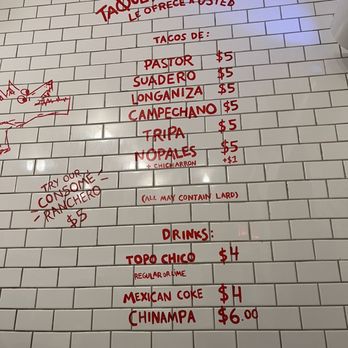 LE OFRECE A USTED
TACOS DE:
PASTOR $5
SUADERO $5
LONGANIZA $5
CAMPECHANO $5
TRIPA $5
NOPALES $5
+ CHICHARRON +$1
TRY OUR
CONSOME
RANCHERO
$5
(ALL MAY CONTAIN LARD)
DRINKS:
TOPO CHICO $4
REGULAR OR LIME
MEXICAN COKE $4
CHINAMPA $6.00